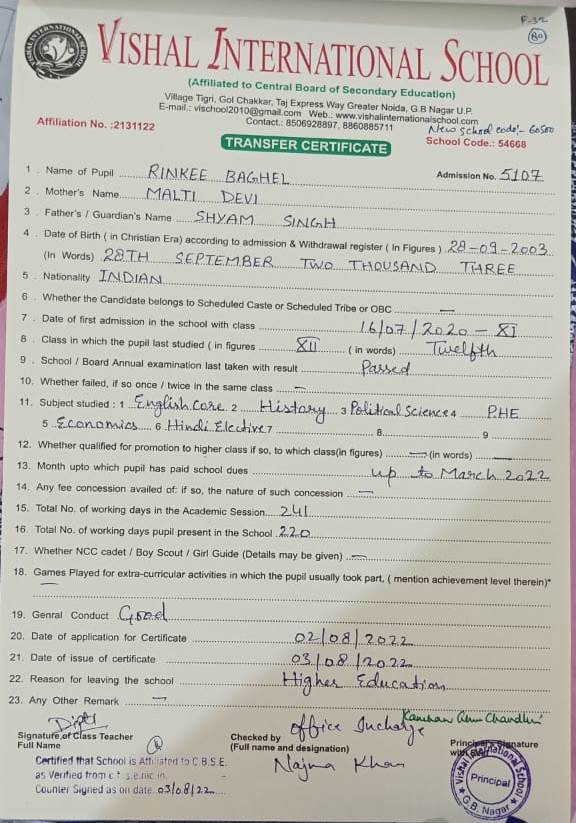 F-32
80
VISHAL INTERNATIONAL SCHOOL
(Affiliated to Central Board of Secondary Education)
Village Tigri, Gol Chakkar, Taj Express Way Greater Noida, G.B Nagar U.P.
E-mail.: vischool2010@gmail.com Web.: www.vishalinternationalschool.com
Contact.: 8506928897, 8860885711
New school code:- 60500
Affiliation No. :2131122
School Code.: 54668
TRANSFER CERTIFICATE
1 . Name of Pupil RINKEE BAGHEL Admission No. 5107
2 . Mother's Name MALTI DEVI
3 . Father's / Guardian's Name SHYAM SINGH
4 . Date of Birth ( in Christian Era) according to admission & Withdrawal register ( In Figures ) 28-09-2003
(In Words) 28TH SEPTEMBER TWO THOUSAND THREE
5 . Nationality INDIAN
6 . Whether the Candidate belongs to Scheduled Caste or Scheduled Tribe or OBC —
7 . Date of first admission in the school with class 16/07/2020 - XI
8 . Class in which the pupil last studied ( in figures XII ( in words) Twelfth
9 . School / Board Annual examination last taken with result Passed
10. Whether failed, if so once / twice in the same class —
11. Subject studied : 1 English Core 2 History 3 Political Science 4 P.HE
5 Economics 6 Hindi Elective 7 8 9
12. Whether qualified for promotion to higher class if so, to which class(in figures) — (in words) —
13. Month upto which pupil has paid school dues up to March 2022
14. Any fee concession availed of: if so, the nature of such concession —
15. Total No. of working days in the Academic Session 241
16. Total No. of working days pupil present in the School 220
17. Whether NCC cadet / Boy Scout / Girl Guide (Details may be given) —
18. Games Played for extra-curricular activities in which the pupil usually took part, ( mention achievement level therein)*
—
19. Genral Conduct Good
20. Date of application for Certificate 02/08/2022
21. Date of issue of certificate 03/08/2022
22. Reason for leaving the school Higher Education
23. Any Other Remark —
Dipti
Office Incharge
Signature of Class Teacher
Full Name
Checked by
(Full name and designation)
Najma Khan
Principal's Signature
with
Certified that School is Affiliated to C.B.S.E.
as Verified from
Counter Signed as on date 03/08/22
Vishal International School
Principal
G.B. Nagar